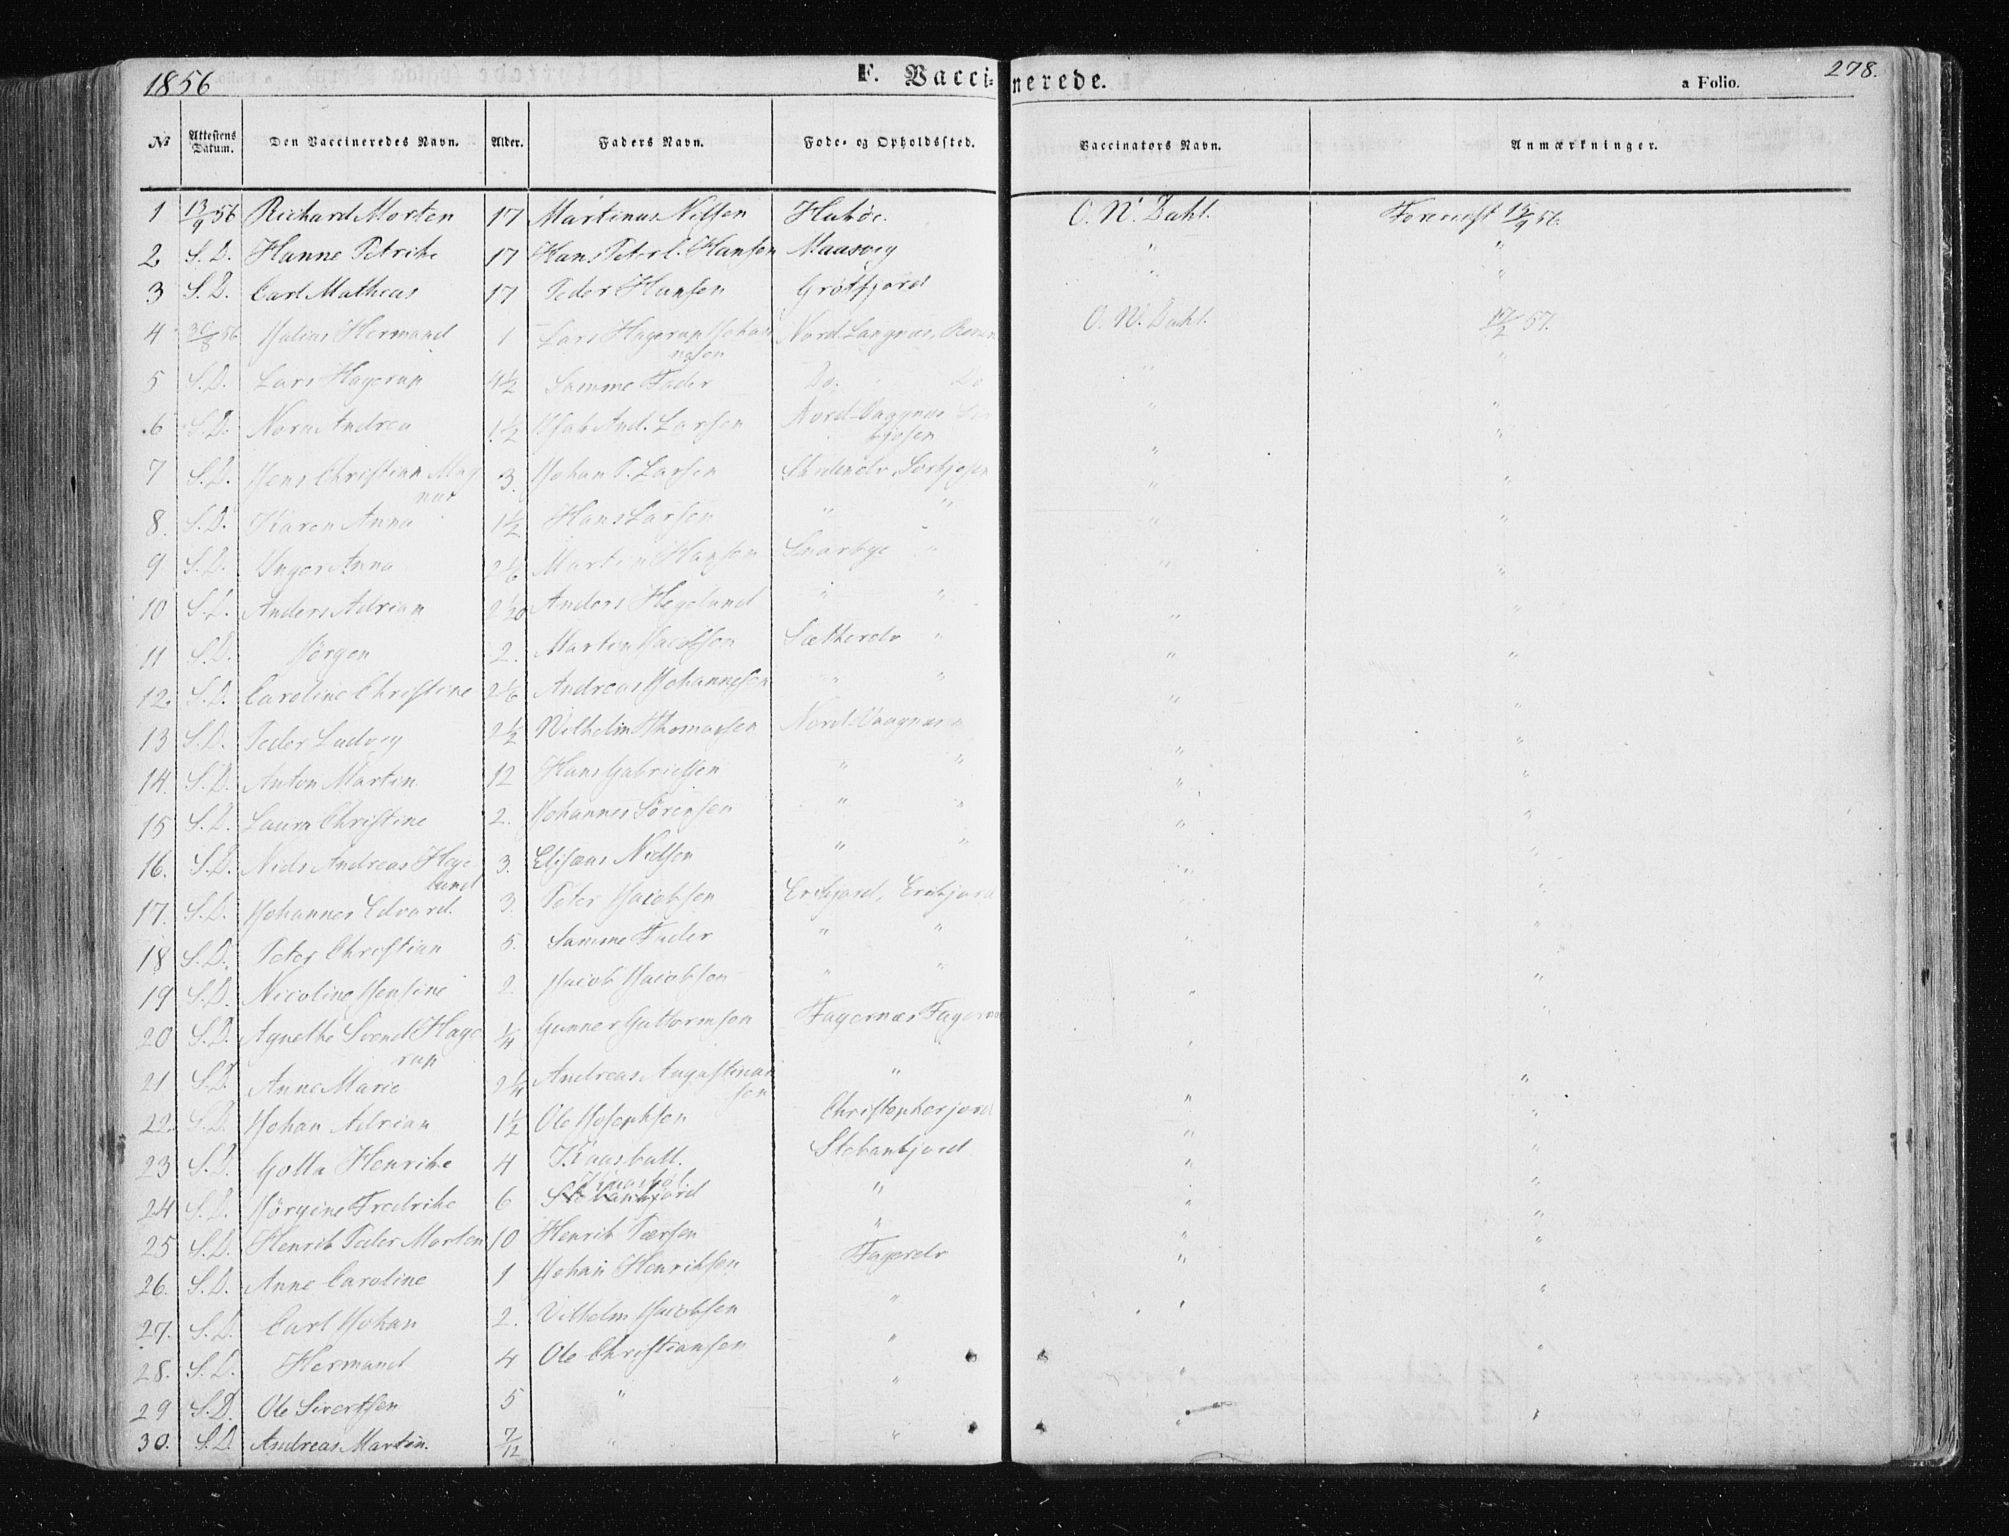 1856 F. Vaccinerede. a Folio. 278.
№ Attestens Datum. Den Vaccineredes Navn. Alder. Faders Navn. Føde- og Opholdssted. Vaccinators Navn. Anmærkninger.
1 13/9 56 Richard Morten 17 Martinus Nilsen O. W. Dahl. Foreviist 19/9 56.
2 S. D. Hanne Petrike 17 Hans Peter L. Hansen Maasvig " "
3 S. D. Carl Mathias 17 Peder Hansen Grøtfjord " "
4 3C/8 56 Julius Hermand 1 Lars Hagerup Johan Nord Langnæs, O. W. Dahl. 17/2 57.
nesen
5 S. D. Lars Hagerup 4 1/2 Samme Fader Do. Do " "
6 S. D. Nora Andrea 1 1/2 And. Larsen Nord " "
kjosen
7 S. D. Jens Christian Mag 3. Johan P. Larsen Sørkjosen " "
nus
8. S. D. Karen Anna 1 1/2 Hans Larsen " " " "
9 S. D. Inger Anna 2 1/6 Martin Hansen Snarbye " " "
10 S. D. Anders Adrian Anders Hegelund " " " "
11 S. D. Jørgen 2. Martin Jacobsen Sætterelv " " "
12. S. D. Caroline Christine 2 1/6 Andreas Johannesen " " " "
13 S. D. Peder Ludvig 2 1/2 Vilhelm Thomassen Nord Vaagnæs " " "
14. S. D. Anton Martin 12 Hans Gabrielsen " " " "
15 S. D. Laura Christine 2. Johannes Sørensen " " " "
16. S. D. Niels Andreas Hege 3. Elisæus Nielsen " " " "
lund
17. S. D. Johannes Edvard. 3. Peter Jacobsen Erikfjord, Erikfjord " "
18 S. D. Peter Christian 5. Samme Fader " " " "
19 S. D. Nicoline Jensine 2 Jacob Jacobsen " " " "
20 S. D. Agnethe Svend Hage 1/4 Gunner Guttormsen Fagernæs Fagernæs " "
rup
21 S. D. Anne Marie 2 1/4 Andreas Augustinus " " "
sen
22. S. D. Johan Adrian 1 1/2 Ole Josephsen Christopherjord " "
23 S. D. Golla Henrike 4 Kaasbøll. Stobankjord " "
24 S. D. Jørgine Fredrike 6 Kaasbøl. " " "
25 S. D. Henrik Peder Morten 10 Henrik Pærsen " " "
26. S. D. Anne Caroline 1 Johan Henriksen Fagerelv " "
27. S. D. Carl Johan 2. Vilhelm Jacobsen " " "
28. S. D. Hermand 4 Ole Christiansen " " "
29 S. D. Ole Sivertsen 5 " " " "
30. S. D. Andreas Martin. 7/12 " "